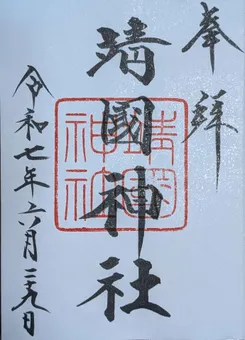 奉拝
靖國神社
靖國
神社
令和七年六月二十九日